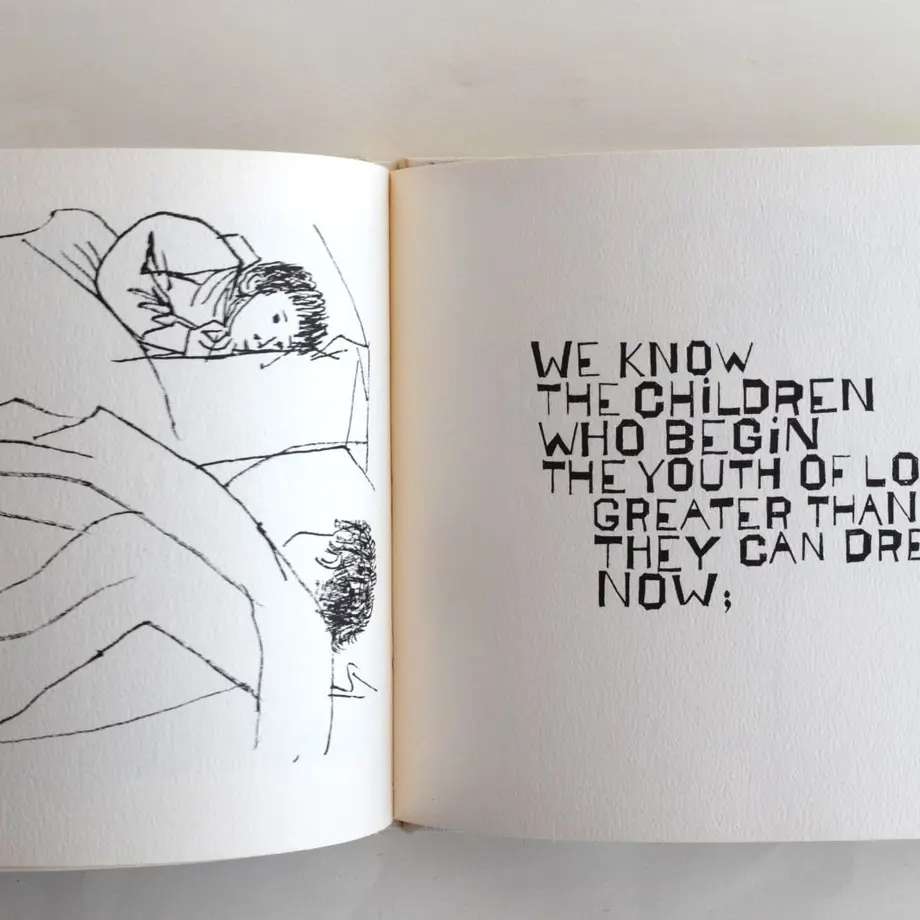 WE KNOW
THE CHiLDREN
WHO BEGiN
THE YOUTH OF
GREATER THAN
THEY CAN
NOW;